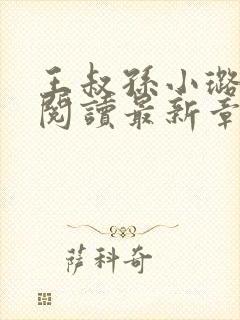 王叔孫小璐
閱讀最新章
薩科奇